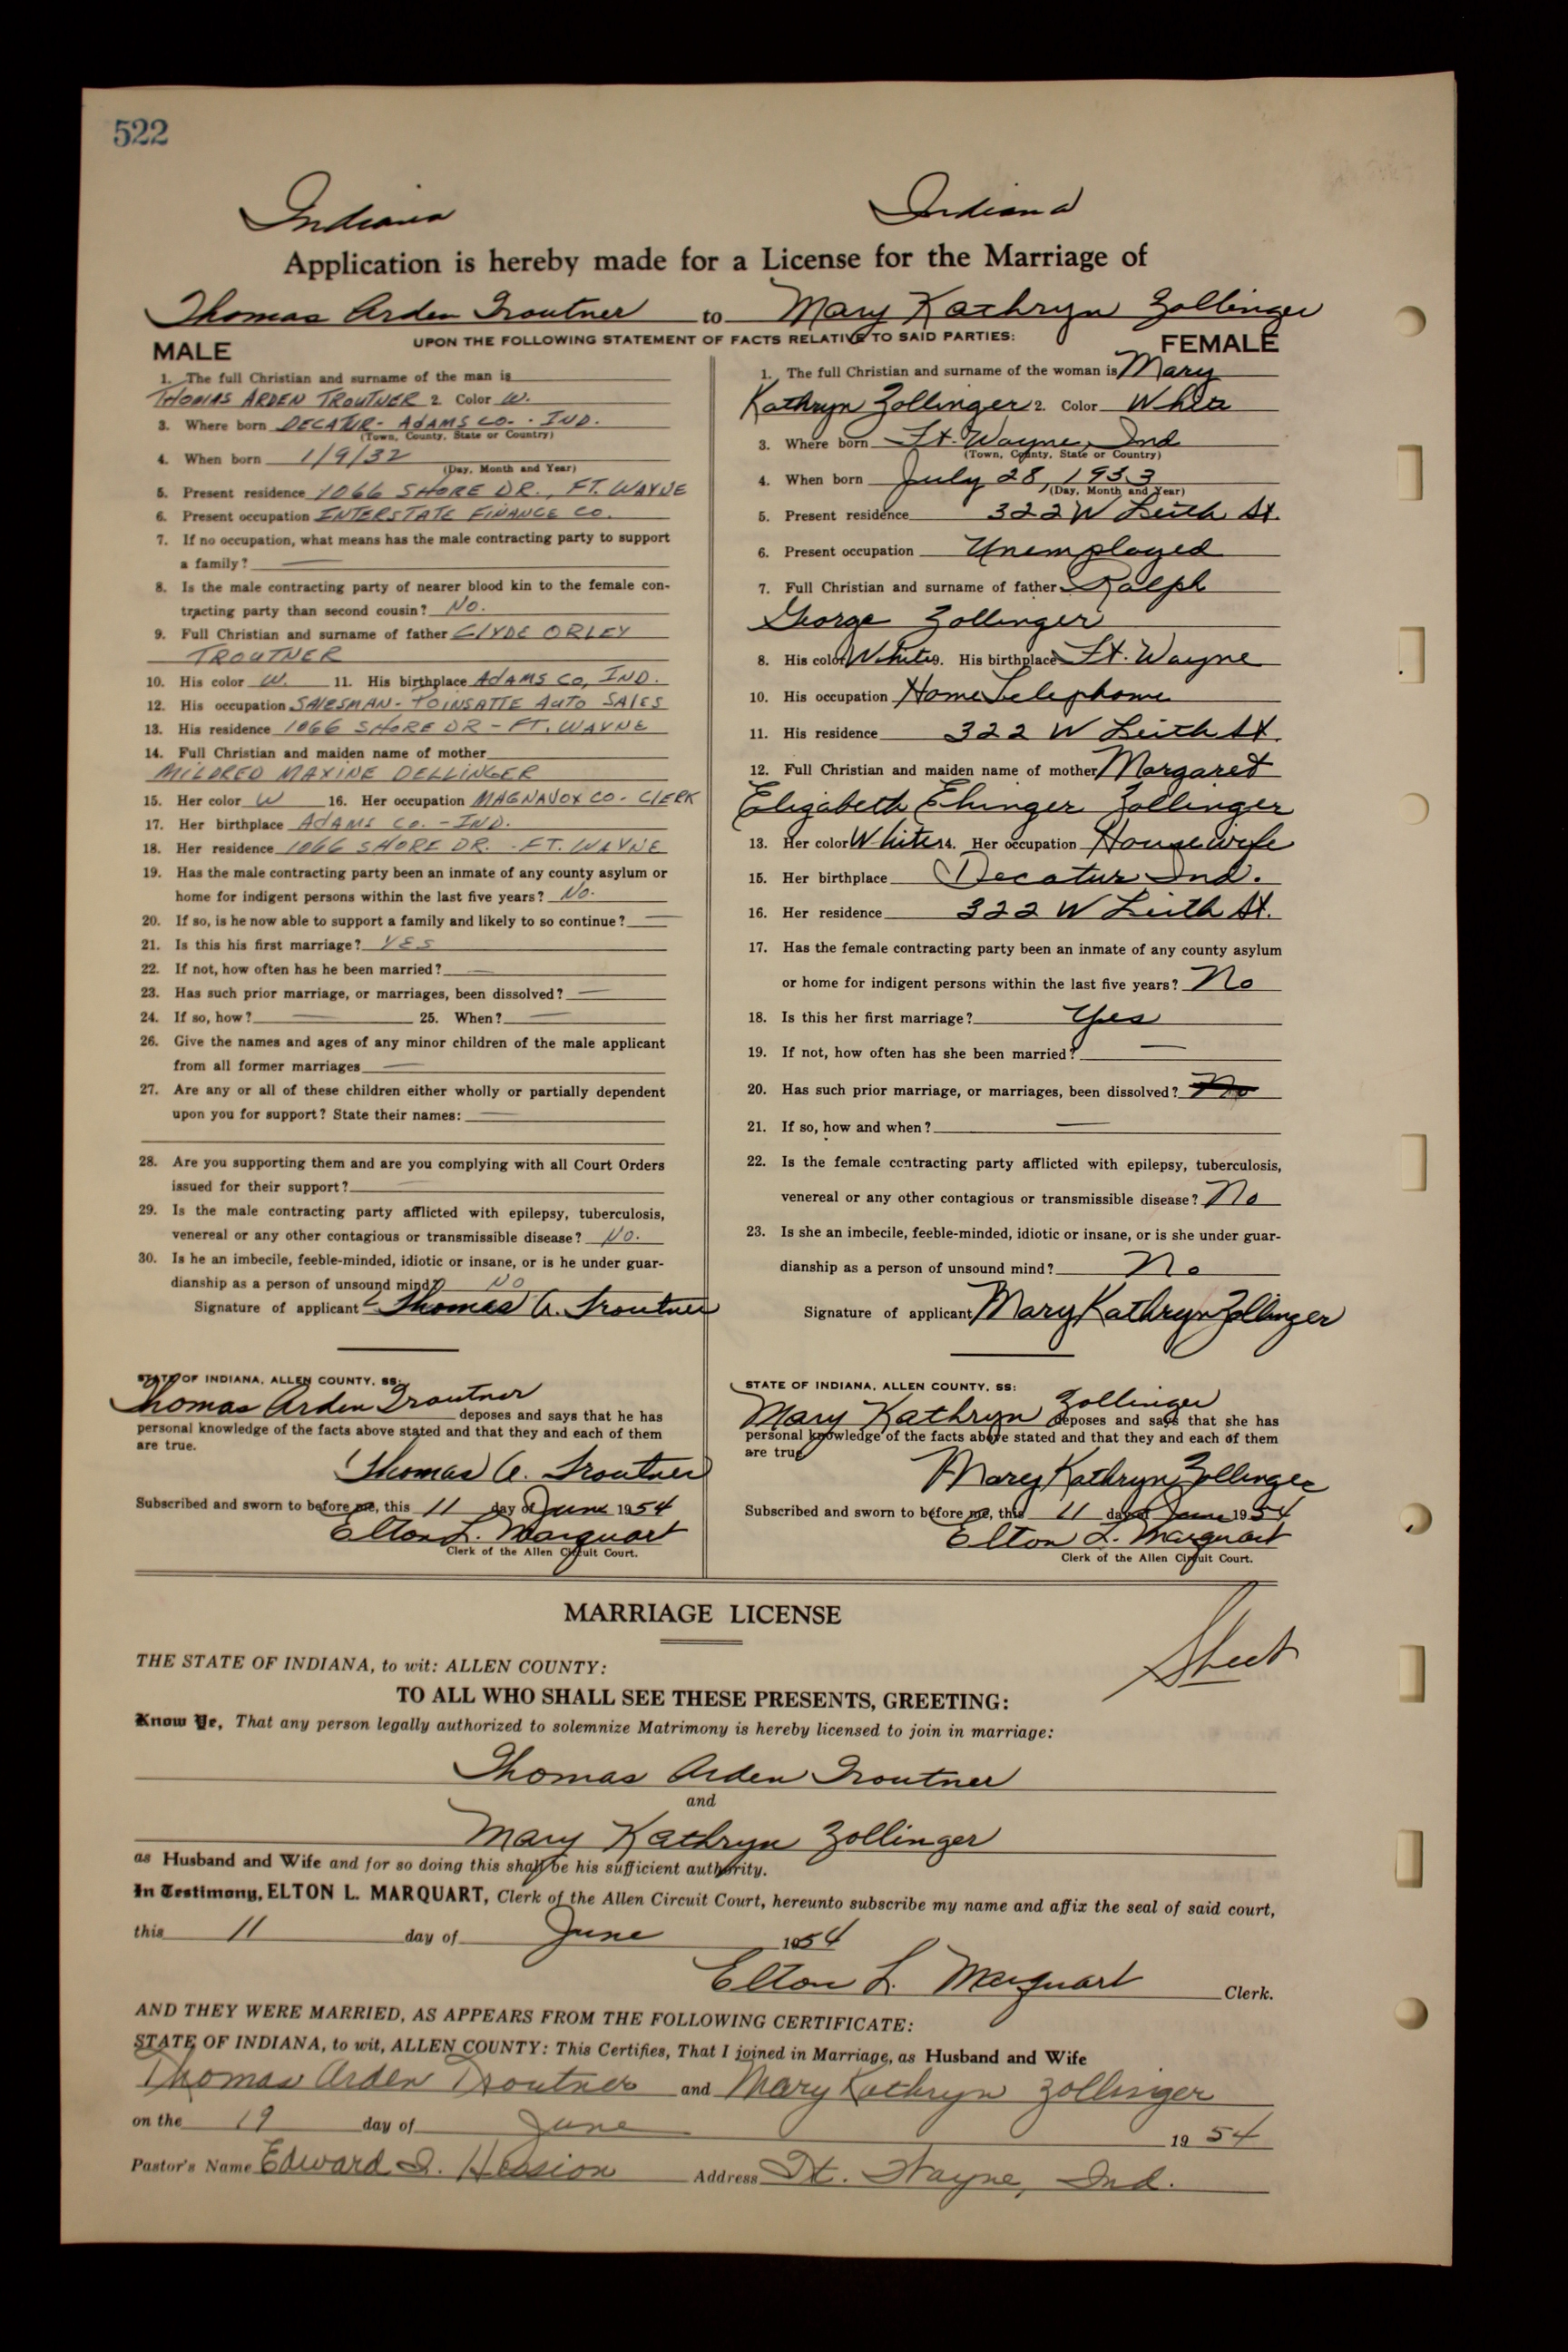 522
Indiana Indiana
Application is hereby made for a License for the Marriage of
Thomas Arden Troutner to Mary Kathryn Zollinger
UPON THE FOLLOWING STATEMENT OF FACTS RELATIVE TO SAID PARTIES:
MALE
1. The full Christian and surname of the man is
THOMAS ARDEN TROUTNER 2. Color W.
3. Where born DECATUR - ADAMS CO. - IND.
(Town, County, State or Country)
4. When born 1/9/32
(Day, Month and Year)
5. Present residence 1066 SHORE DR., FT. WAYNE
6. Present occupation INTERSTATE FINANCE CO.
7. If no occupation, what means has the male contracting party to support
a family? —
8. Is the male contracting party of nearer blood kin to the female con-
tracting party than second cousin? NO.
9. Full Christian and surname of father CLYDE ORLEY
TROUTNER
10. His color W. 11. His birthplace ADAMS CO, IND.
12. His occupation SALESMAN - POINSATTE AUTO SALES
13. His residence 1066 SHORE DR - FT. WAYNE
14. Full Christian and maiden name of mother
MILDRED MAXINE DELLINGER
15. Her color W 16. Her occupation MAGNAVOX CO - CLERK
17. Her birthplace ADAMS CO. - IND.
18. Her residence 1066 SHORE DR. - FT. WAYNE
19. Has the male contracting party been an inmate of any county asylum or
home for indigent persons within the last five years? NO.
20. If so, is he now able to support a family and likely to so continue? —
21. Is this his first marriage? YES
22. If not, how often has he been married? —
23. Has such prior marriage, or marriages, been dissolved? —
24. If so, how? — 25. When? —
26. Give the names and ages of any minor children of the male applicant
from all former marriages —
27. Are any or all of these children either wholly or partially dependent
upon you for support? State their names: —
28. Are you supporting them and are you complying with all Court Orders
issued for their support? —
29. Is the male contracting party afflicted with epilepsy, tuberculosis,
venereal or any other contagious or transmissible disease? NO.
30. Is he an imbecile, feeble-minded, idiotic or insane, or is he under guar-
dianship as a person of unsound mind? NO
Signature of applicant Thomas A. Troutner
STATE OF INDIANA, ALLEN COUNTY, SS:
Thomas Arden Troutner deposes and says that he has
personal knowledge of the facts above stated and that they and each of them
are true.
Thomas A. Troutner
Subscribed and sworn to before me, this 11 day of June 1954
Elton L. Marquart
Clerk of the Allen Circuit Court.
FEMALE
1. The full Christian and surname of the woman is Mary
Kathryn Zollinger 2. Color White
3. Where born Ft. Wayne, Ind
(Town, County, State or Country)
4. When born July 28, 1933
(Day, Month and Year)
5. Present residence 322 W Leith St.
6. Present occupation Unemployed
7. Full Christian and surname of father Ralph
George Zollinger
8. His color White 9. His birthplace Ft. Wayne
10. His occupation Home Telephone
11. His residence 322 W Leith St.
12. Full Christian and maiden name of mother Margaret
Elizabeth Ehinger Zollinger
13. Her color White 14. Her occupation Housewife
15. Her birthplace Decatur Ind.
16. Her residence 322 W Leith St.
17. Has the female contracting party been an inmate of any county asylum
or home for indigent persons within the last five years? No
18. Is this her first marriage? Yes
19. If not, how often has she been married? —
20. Has such prior marriage, or marriages, been dissolved? No
21. If so, how and when? —
22. Is the female contracting party afflicted with epilepsy, tuberculosis,
venereal or any other contagious or transmissible disease? No
23. Is she an imbecile, feeble-minded, idiotic or insane, or is she under guar-
dianship as a person of unsound mind? No
Signature of applicant Mary Kathryn Zollinger
STATE OF INDIANA, ALLEN COUNTY, SS:
Mary Kathryn Zollinger deposes and says that she has
personal knowledge of the facts above stated and that they and each of them
are true
Mary Kathryn Zollinger
Subscribed and sworn to before me, this 11 day of June 1954
Elton L. Marquart
Clerk of the Allen Circuit Court.
MARRIAGE LICENSE
THE STATE OF INDIANA, to wit: ALLEN COUNTY:
TO ALL WHO SHALL SEE THESE PRESENTS, GREETING:
Know Ye, That any person legally authorized to solemnize Matrimony is hereby licensed to join in marriage:
Thomas Arden Troutner
and
Mary Kathryn Zollinger
as Husband and Wife and for so doing this shall be his sufficient authority.
In Testimony, ELTON L. MARQUART, Clerk of the Allen Circuit Court, hereunto subscribe my name and affix the seal of said court,
this 11 day of June 1954
Elton L. Marquart Clerk.
AND THEY WERE MARRIED, AS APPEARS FROM THE FOLLOWING CERTIFICATE:
STATE OF INDIANA, to wit, ALLEN COUNTY: This Certifies, That I joined in Marriage, as Husband and Wife
Thomas Arden Troutner and Mary Kathryn Zollinger
on the 19 day of June 1954
Pastor's Name Edward I. Hession Address Ft. Wayne, Ind.